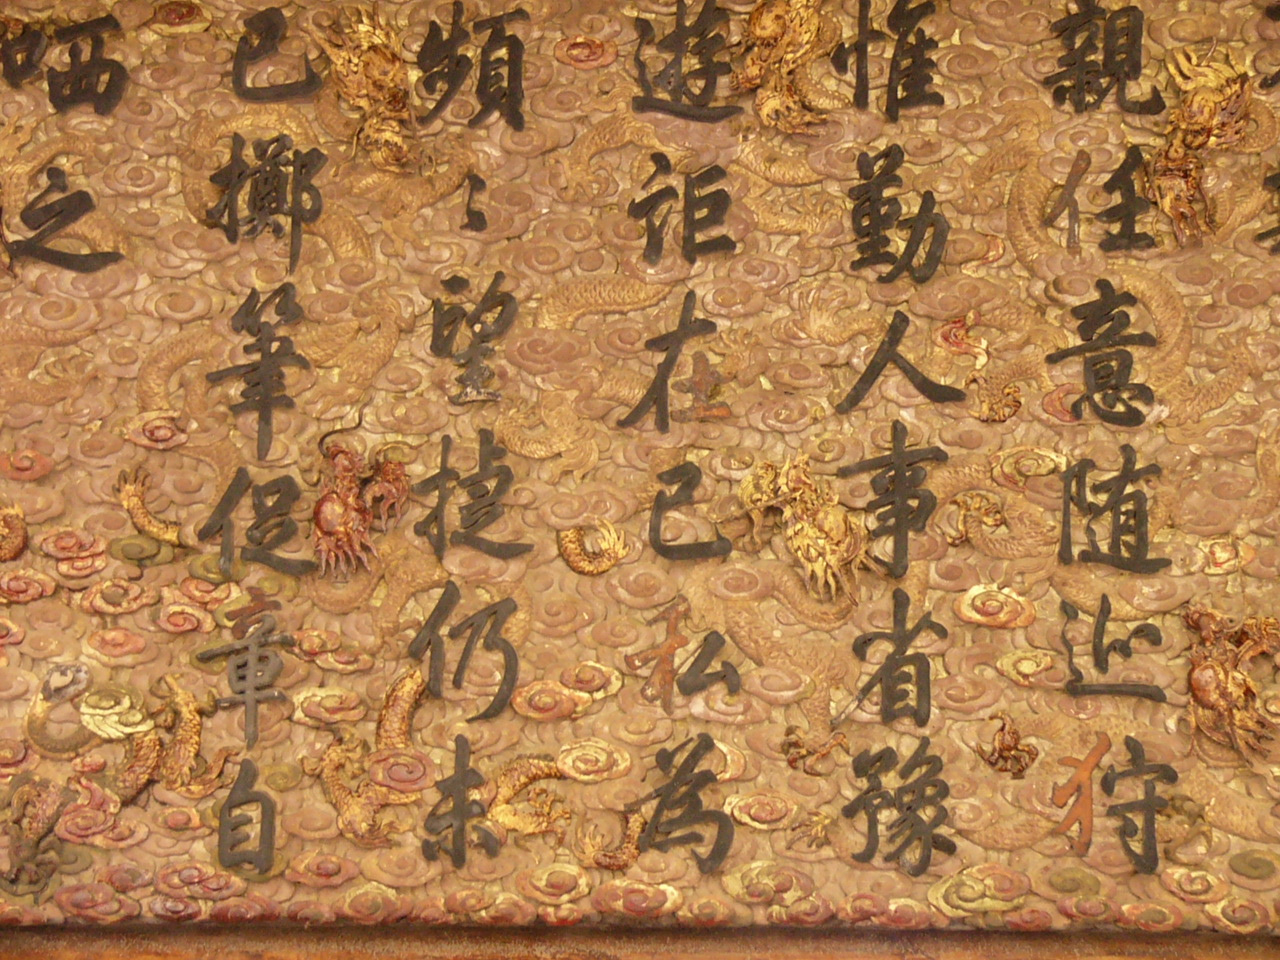 親任意随巡狩
惟勤人事省豫
遊詎在已私為
頻〻望捷仍未
已擲筆促章自
哂之